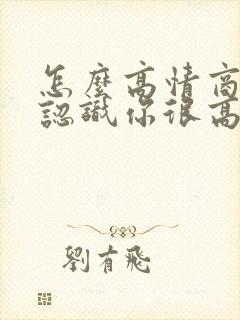 怎麼高情商
認識你很高
劉有飛